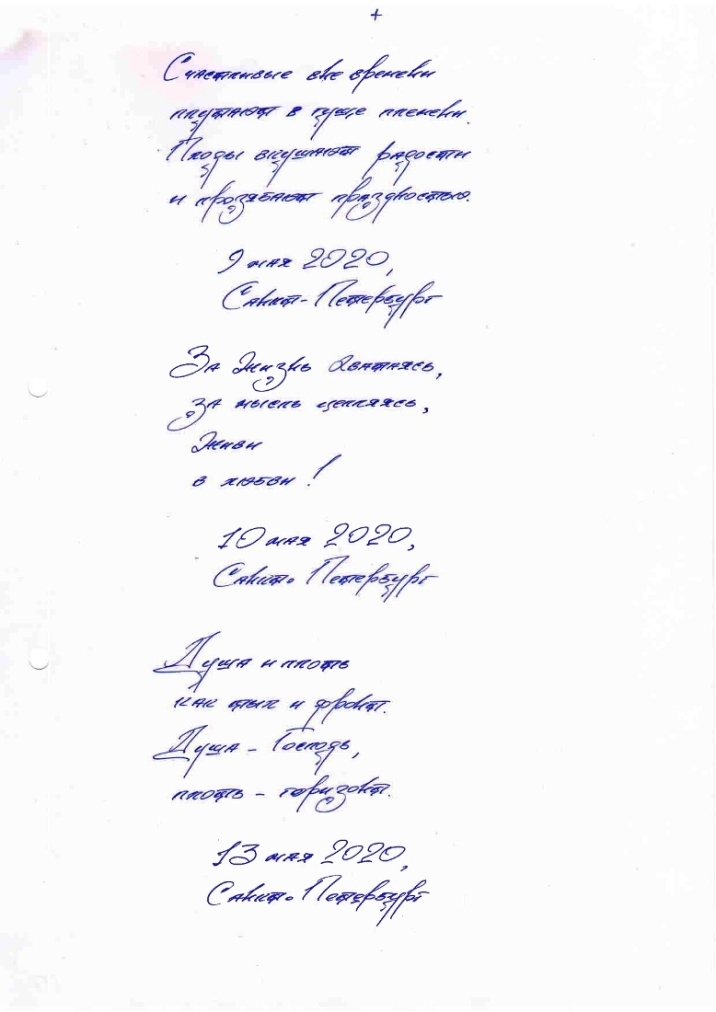 +
Счастливые вне времени
плутают в гуще племени.
Плоды вкушают радости
и прозябают праздностью.
9 мая 2020,
Санкт-Петербург
За жизнь хватаясь,
за мысль цепляясь,
живи
в любви!
10 мая 2020,
Санкт-Петербург
Душа и плоть
как тыл и фронт.
Душа - Господь,
плоть - горизонт.
13 мая 2020,
Санкт-Петербург